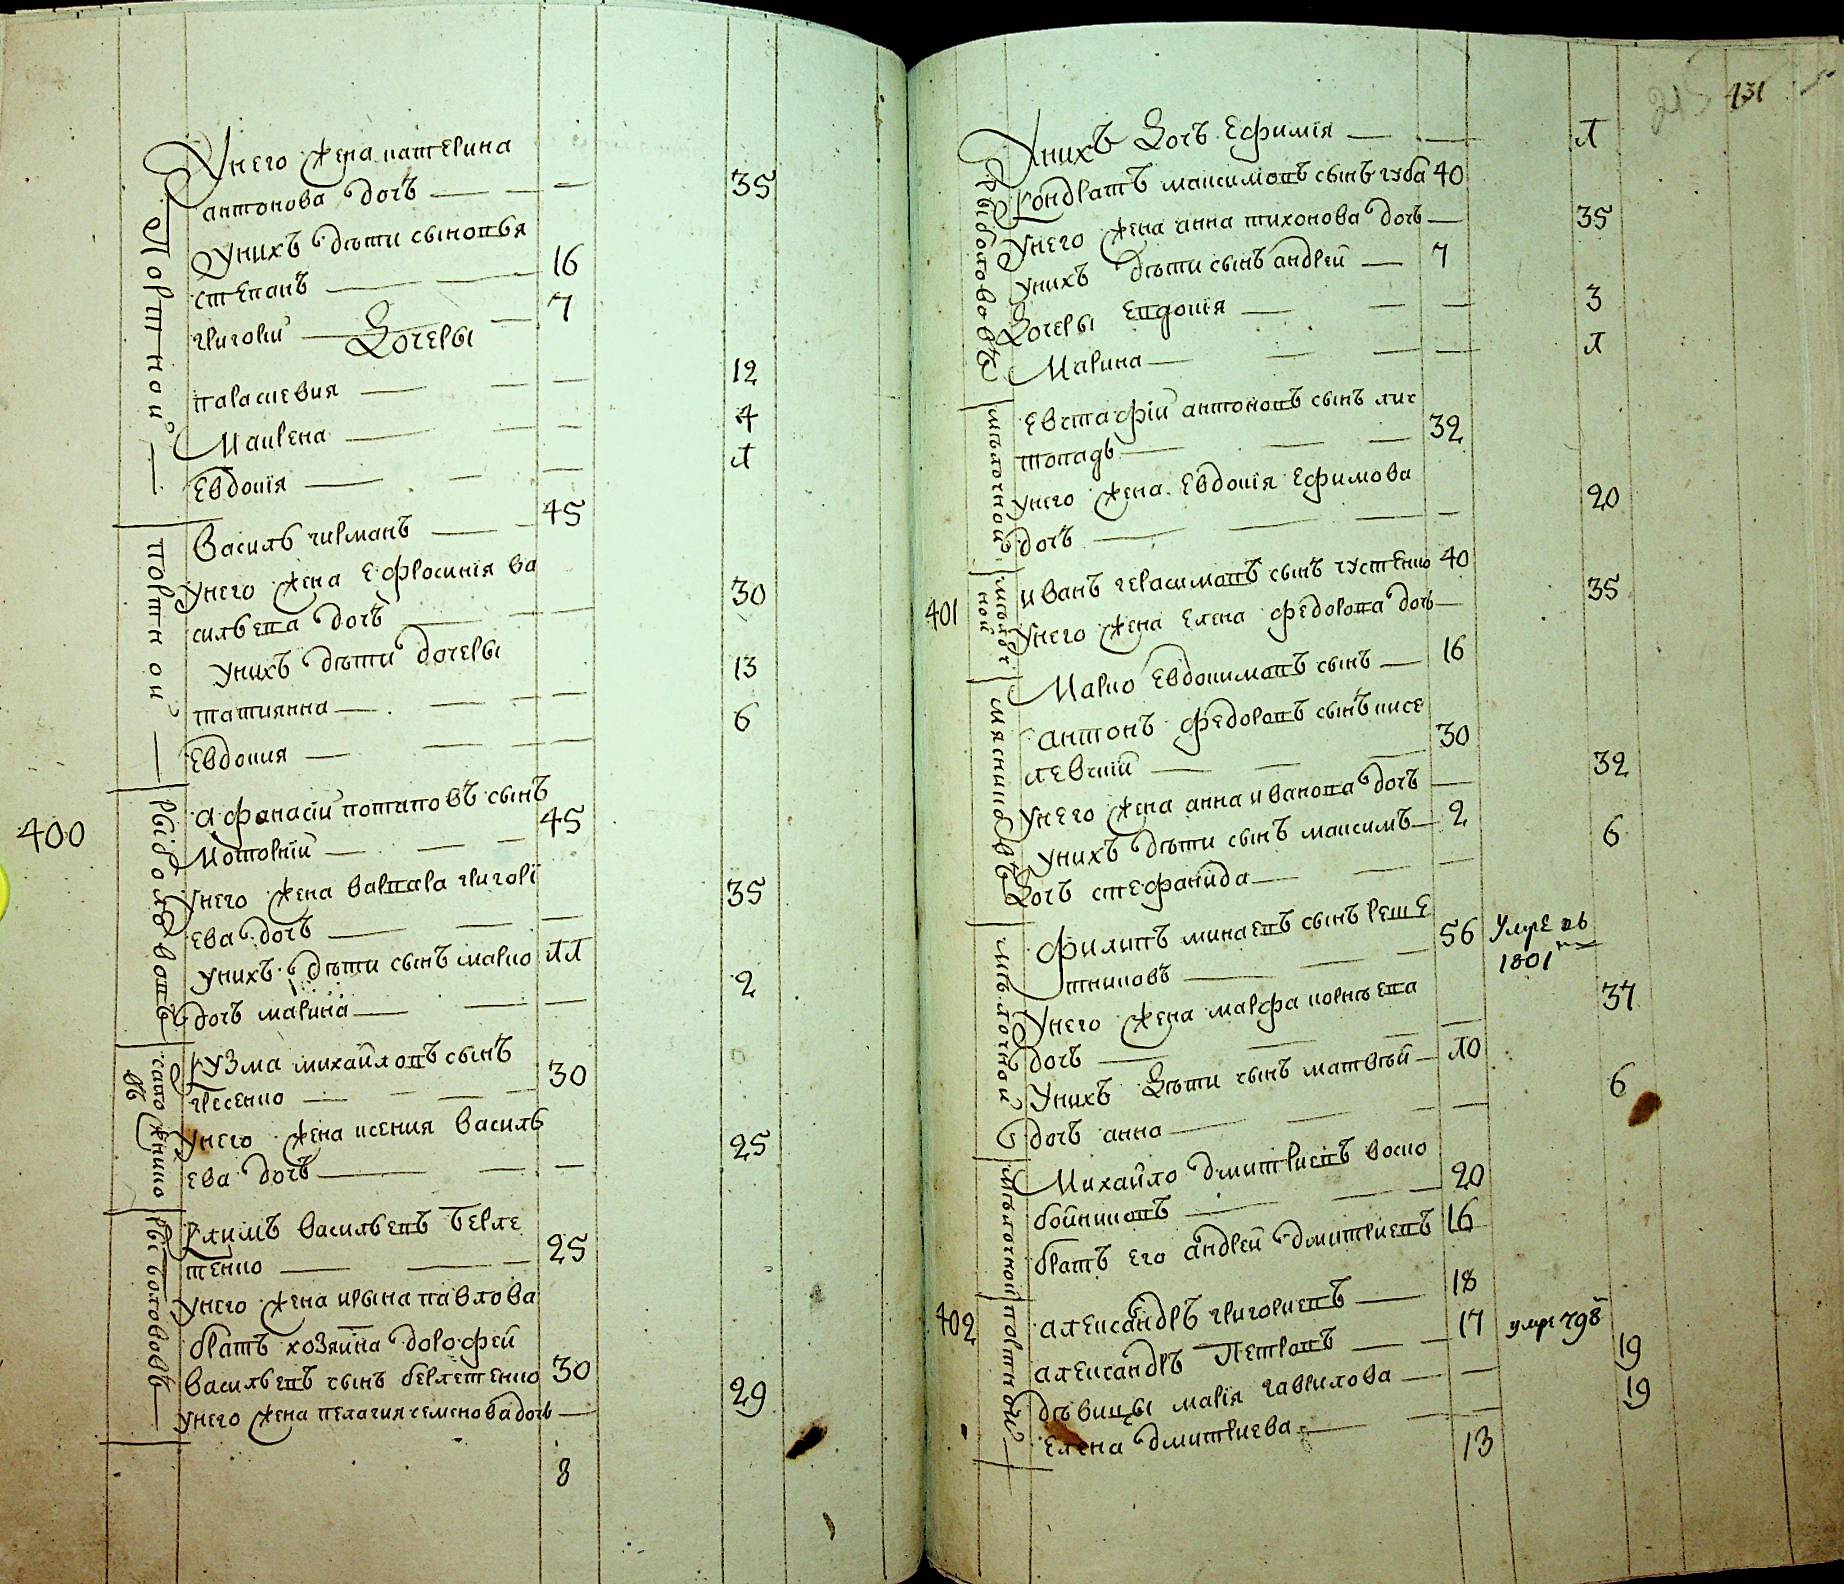 Унего жена катерина
антонова дочъ — 35
Унихъ дѣти сыновья
степанъ — 16
григории — 7
Дочеры
параскевия — 12
Макрена — 4
Евдокія — 1
Портной
Василь гирманъ — 45
Унего жена Ефросинія ва
сильева дочъ — 30
Унихъ дѣти дочеры
татиянна — 13
Евдокия — 6
портной
400
Афанасіи потаповъ сынъ
Моторніи — 45
Унего жена варвара григорі
ева дочъ — 35
Унихъ дѣти сынъ марко
дочъ марина — 2
рыболововъ
Кузма михайловъ сынъ
гресенко — 30
Унего жена ксения василь
ева дочъ — 25
сапожнико
въ
Климъ васильевъ верле
тенко — 25
Унего жена ирына павлова
братъ хозяина дорофей
васильевъ сынъ берлетенко 30
унего жена пелагия семенова дочъ — 29
рыболововъ
8
431
Унихъ Дочъ Ефимія — 1
Кондратъ максимовъ сынъ губа 40
Унего жена анна тихонова дочъ — 35
унихъ дѣти сынъ андрей — 7
Дочеры Евдокія — 3
Марина — 1
рыболововъ
Евстафіи антоновъ сынъ лис
топадъ — 32
унего жена Евдокія Ефимова
дочъ — 20
мѣлочной
401
иванъ герасимовъ сынъ густенко 40
Унего жена Елена федорова дочъ — 35
Марко Евдокимовъ сынъ — 16
мѣлоч
ной
антонъ федоровъ сынъ кисе
левскіи — 30
Унего жена анна иванова дочъ — 32
унихъ дѣти сынъ максимъ — 2
Дочъ стефанида — 6
мяснико
въ
филипъ минаевъ сынъ Реше
тниковъ — 56 Умре въ
1801
Унего жена марфа корнѣева
дочъ — 37
Унихъ Дѣти сынъ матвѣй — 10
дочъ анна — 6
мѣлочной
Михайло дмитриевъ воско
бойниковъ — 20
братъ его андрей дмитриевъ 16
мѣлочной
402
александръ григориевъ — 18
александръ Петровъ — 17 умре 798
дѣвицы марія гаврилова — 19
Елена дмитриева — 19
портной
13